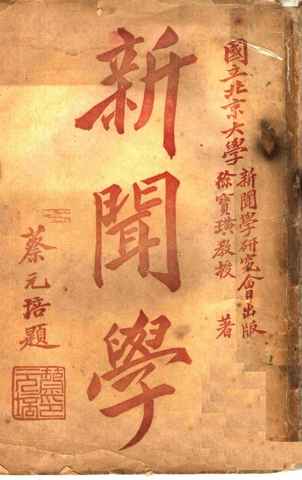 國立北京大學
新聞學研究會出版
徐寶璜教授 著
新聞學
蔡元培題